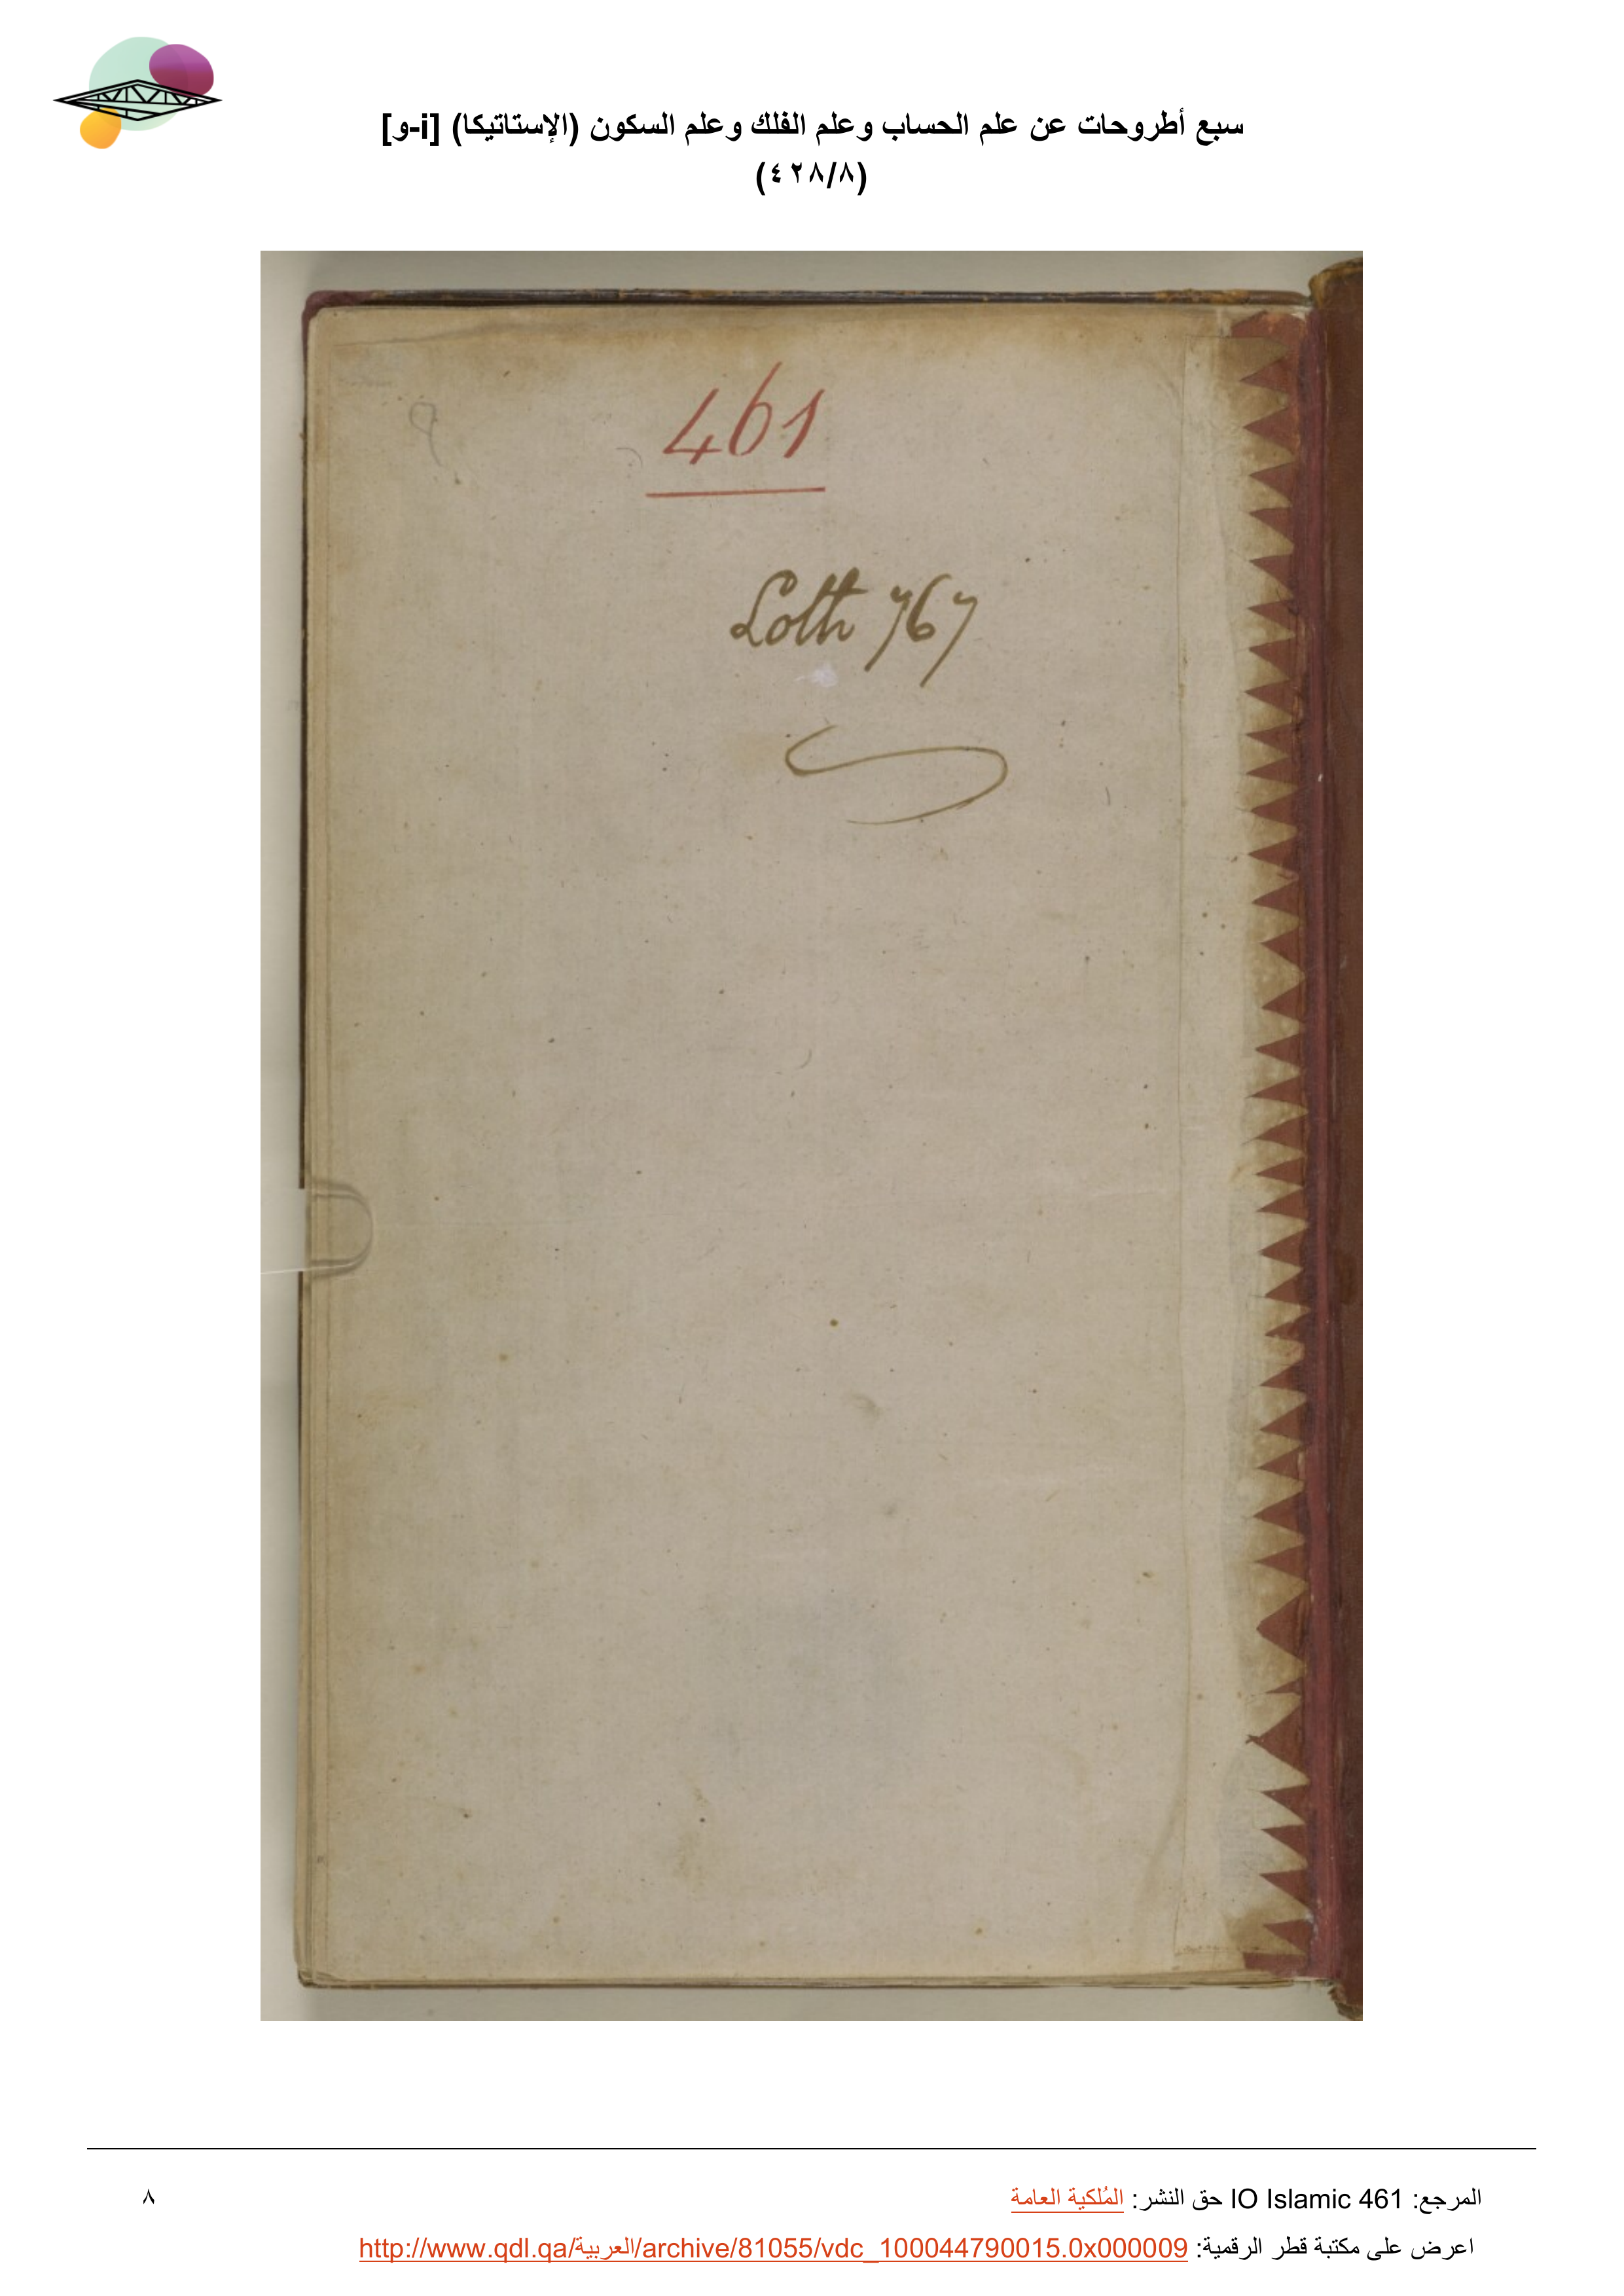 سبع أطروحات عن علم الحساب وعلم الفلك وعلم السكون (الإستاتيكا) [i-و]
(٤٢٨/٨)
461
Loth 767
المرجع: IO Islamic 461 حق النشر: المُلكية العامة
٨
اعرض على مكتبة قطر الرقمية: http://www.qdl.qa/العربية/archive/81055/vdc_100044790015.0x000009